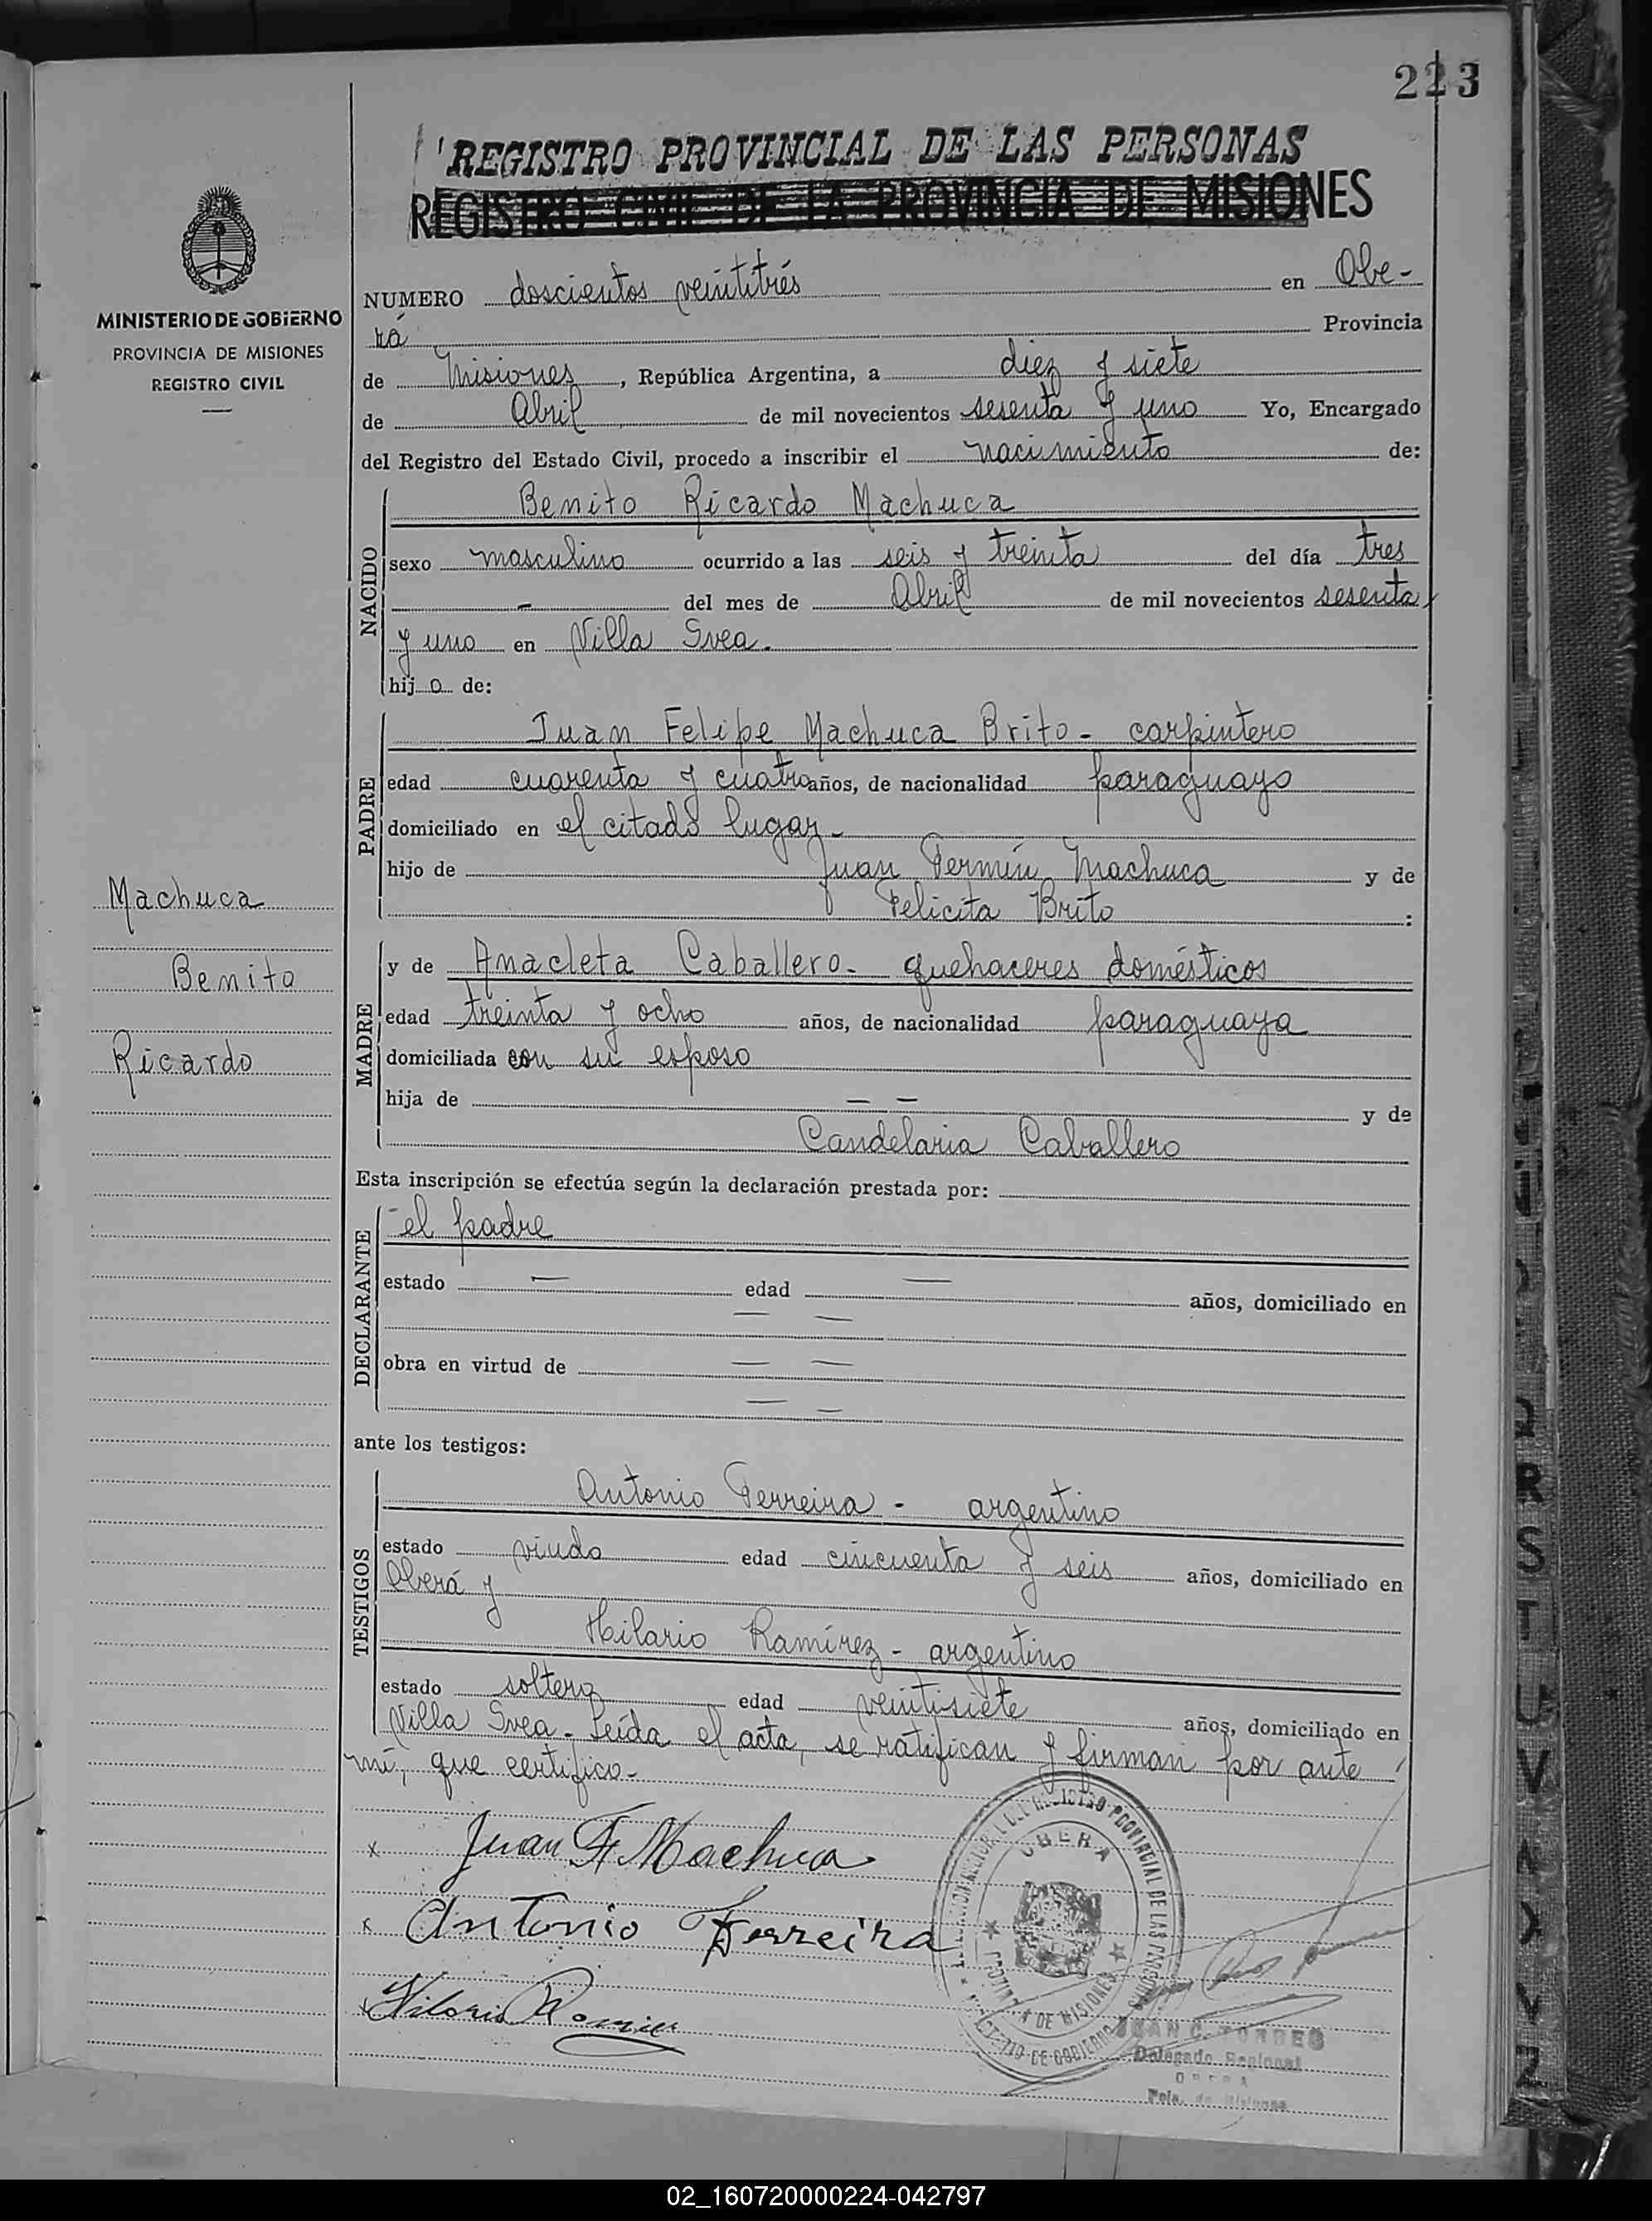 223
REGISTRO PROVINCIAL DE LAS PERSONAS
REGISTRO CIVIL DE LA PROVINCIA DE MISIONES
MINISTERIO DE GOBIERNO
PROVINCIA DE MISIONES
REGISTRO CIVIL
NUMERO doscientos veintitrés en Obe-
rá Provincia
de Misiones, República Argentina, a diez y siete
de Abril de mil novecientos sesenta y uno Yo, Encargado
del Registro del Estado Civil, procedo a inscribir el nacimiento de:
NACIDO
Benito Ricardo Machuca
sexo masculino ocurrido a las seis y treinta del día tres
- del mes de Abril de mil novecientos sesenta
y uno en Villa Svea.
hijo de:
PADRE
Juan Felipe Machuca Brito - carpintero
edad cuarenta y cuatro años, de nacionalidad paraguayo
domiciliado en el citado lugar -
hijo de Juan Fermín Machuca y de
Felicita Brito :
Machuca
Benito
Ricardo
MADRE
y de Anacleta Caballero - quehaceres domésticos
edad treinta y ocho años, de nacionalidad paraguaya
domiciliada con su esposo
hija de — — y de
Candelaria Caballero
Esta inscripción se efectúa según la declaración prestada por:
DECLARANTE
-el padre
estado — edad — años, domiciliado en
— —
obra en virtud de — —
— —
ante los testigos:
TESTIGOS
Antonio Ferreira - argentino
estado viudo edad cincuenta y seis años, domiciliado en
Oberá y
Hilario Ramírez - argentino
estado soltero edad veintisiete años, domiciliado en
Villa Svea - Leída el acta, se ratifican y firman por ante
mí, que certifico -
x Juan F Machuca
x Antonio Ferreira
x Hilario Ramirez
OBERA
REGISTRO PROVINCIAL DE LAS PERSONAS
DE MISIONES
DE GOBIERNO
JUAN C. TORRES
Delegado Regional
OBERA
Pcia. de Misiones
R
S
T
U
V
02_160720000224-042797